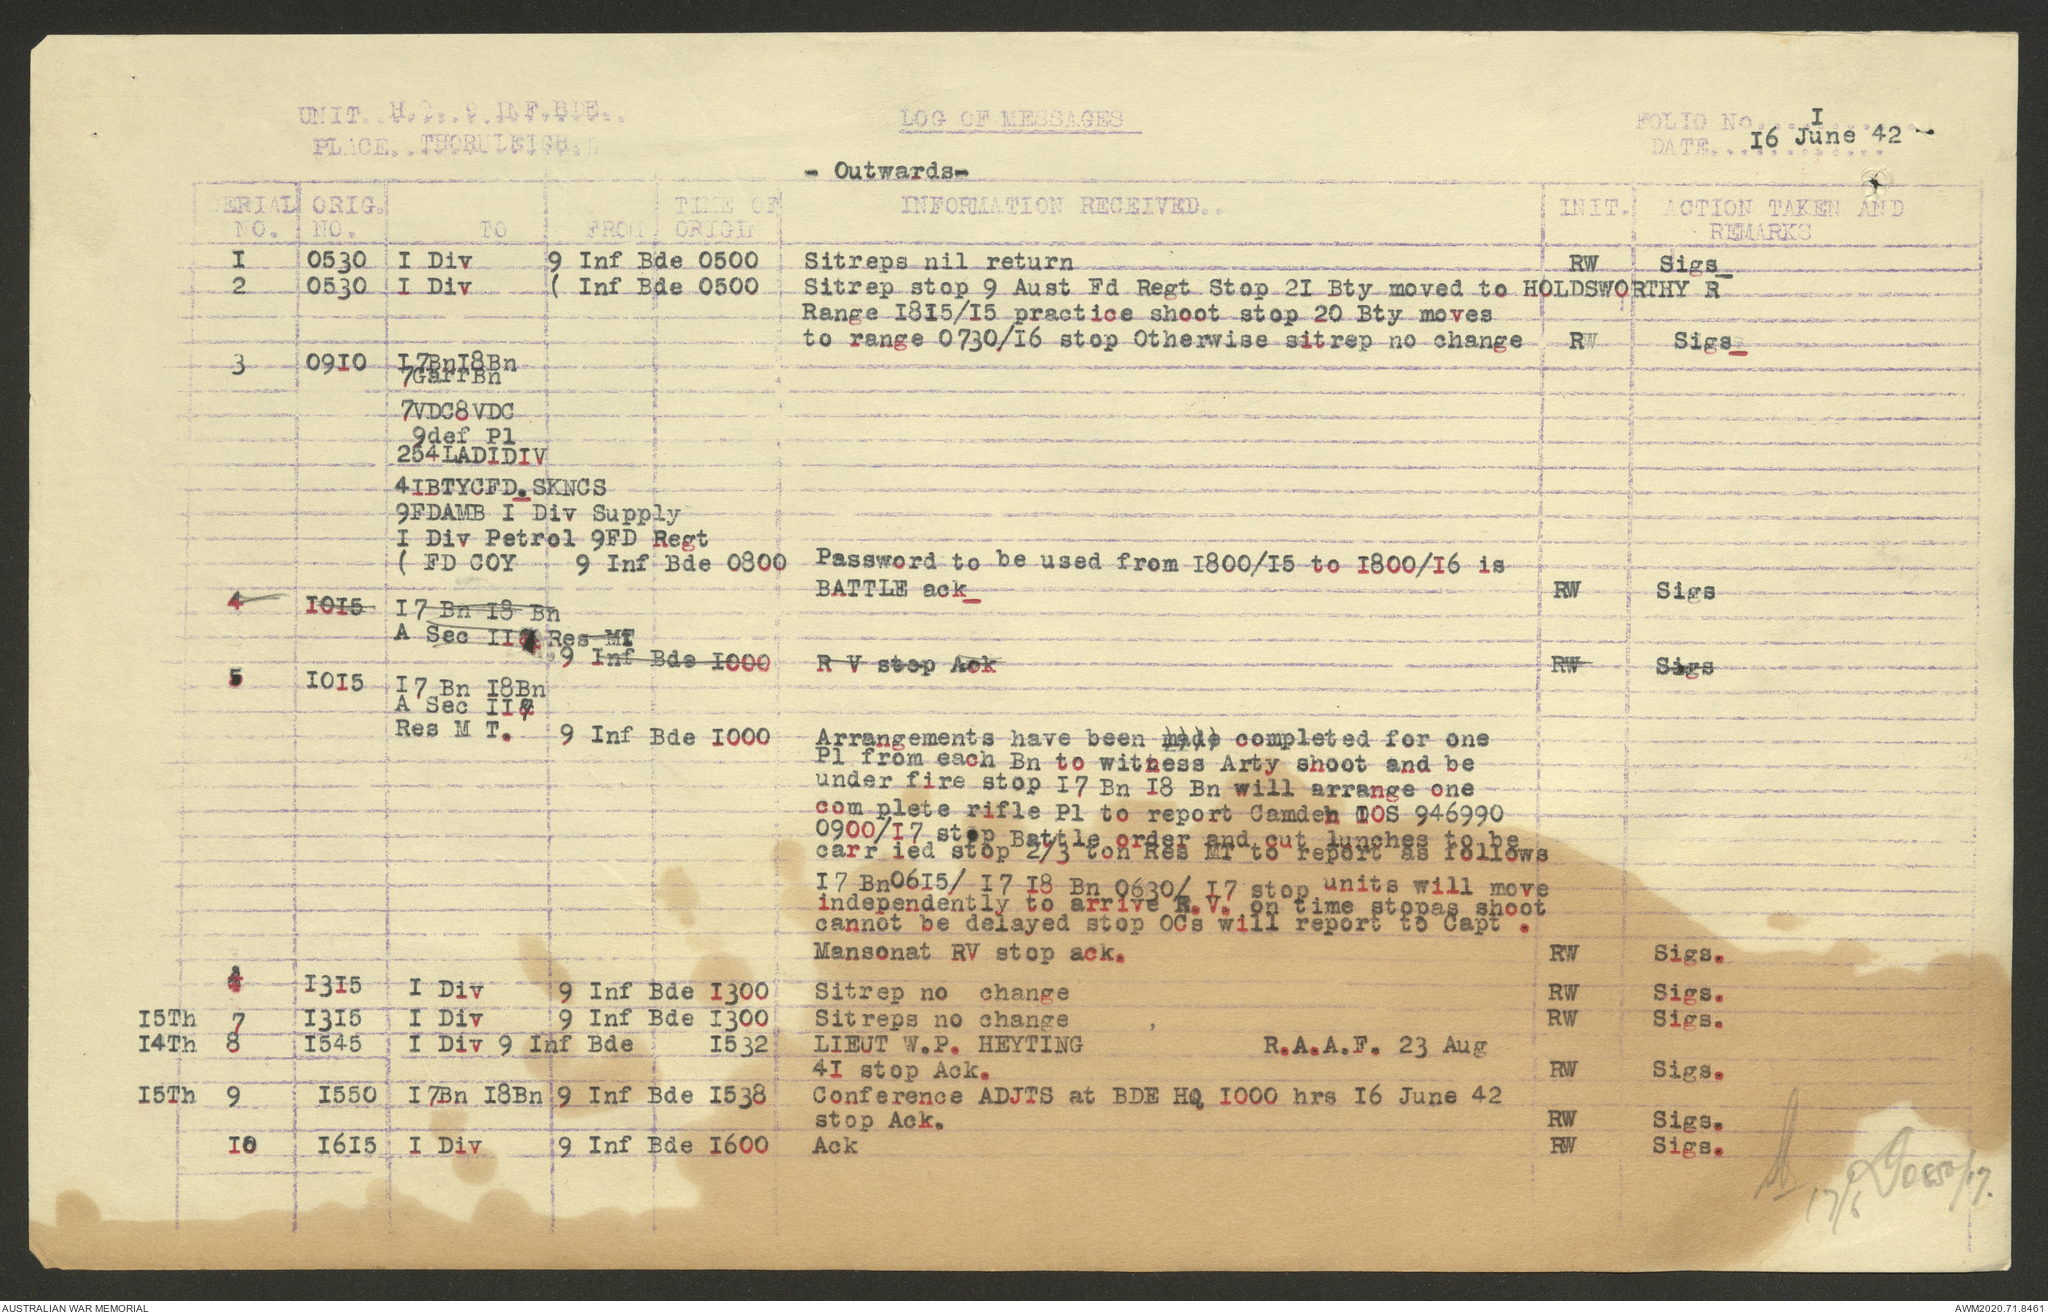 UNIT. H.Q. 9 INF.BDE.
LOG OF MESSAGES
FOLIO No. I
PLACE. THORNLEIGH.
DATE. 16 June 42
- Outwards-
SERIAL NO. ORIG. NO. TO FROM TIME OF ORIGIN INFORMATION RECEIVED.. INIT. ACTION TAKEN AND REMARKS
I 0530 I Div 9 Inf Bde 0500 Sitreps nil return RW Sigs_
2 0530 I Div ( Inf Bde 0500 Sitrep stop 9 Aust Fd Regt Stop 2I Bty moved to HOLDSWORTHY R
Range I8I5/I5 practice shoot stop 20 Bty moves
to range 0730/I6 stop Otherwise sitrep no change RW Sigs_
3 09I0 I7BnI8Bn
7GarrBn
7VDC8VDC
9def Pl
254LADIDIV
4IBTYCFD.SKNCS
9FDAMB I Div Supply
I Div Petrol 9FD Regt
( FD COY 9 Inf Bde 0800 Password to be used from I800/I5 to I800/I6 is
BATTLE ack_ RW Sigs
4 I0I5 I7 Bn I8 Bn
A Sec II7 Res MT
9 Inf Bde I000 R V stop Ack RW Sigs
5 I0I5 I7 Bn I8Bn
A Sec II7
Res M T. 9 Inf Bde I000 Arrangements have been made completed for one
Pl from each Bn to witness Arty shoot and be
under fire stop I7 Bn I8 Bn will arrange one
com plete rifle Pl to report Camden IOS 946990
0900/I7 stop Battle order and cut lunches to be
carr ied stop 2/3 ton Res MT to report as follows
I7 Bn06I5/ I7 I8 Bn 0630/ I7 stop units will move
independently to arrive R.V. on time stopas shoot
cannot be delayed stop OCs will report to Capt .
Mansonat RV stop ack. RW Sigs.
I3I5 I Div 9 Inf Bde I300 Sitrep no change RW Sigs.
I5Th 7 I3I5 I Div 9 Inf Bde I300 Sitreps no change RW Sigs.
I4Th 8 I545 I Div 9 Inf Bde I532 LIEUT W.P. HEYTING R.A.A.F. 23 Aug
4I stop Ack. RW Sigs.
I5Th 9 I550 I7Bn I8Bn 9 Inf Bde I538 Conference ADJTS at BDE HQ I000 hrs I6 June 42
stop Ack. RW Sigs.
I0 I6I5 I Div 9 Inf Bde I600 Ack RW Sigs.
17/6 0850/17.
AUSTRALIAN WAR MEMORIAL
AWM2020.71.8461